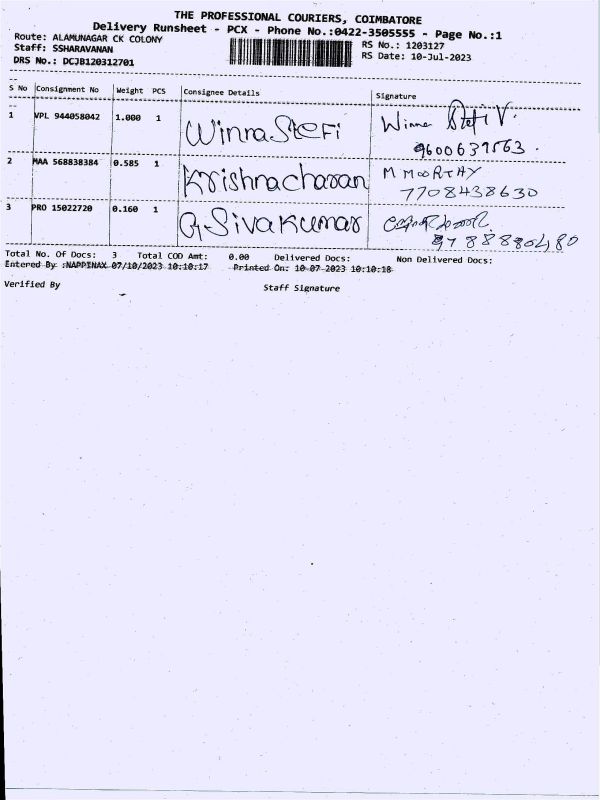 THE PROFESSIONAL COURIERS, COIMBATORE
Delivery Runsheet - PCX - Phone No.:0422-3505555 - Page No.:1
Route: ALAMUNAGAR CK COLONY
RS No.: 1203127
Staff: SSHARAVANAN
RS Date: 10-Jul-2023
DRS No.: DCJB120312701
S No Consignment No Weight PCS Consignee Details Signature
1 VPL 944058042 1.000 1 Winra Stefi Winne Stefi V.
9600639563.
2 MAA 568838384 0.585 1 Krishnacharan M MOORTHY
7708438630
3 PRO 15022720 0.160 1 G Sivakumar
Total No. Of Docs: 3 Total COD Amt: 0.00 Delivered Docs: Non Delivered Docs:
Entered By :NAPPINAX 07/10/2023 10:10:17 Printed On: 10-07-2023 10:10:18
Verified By Staff Signature